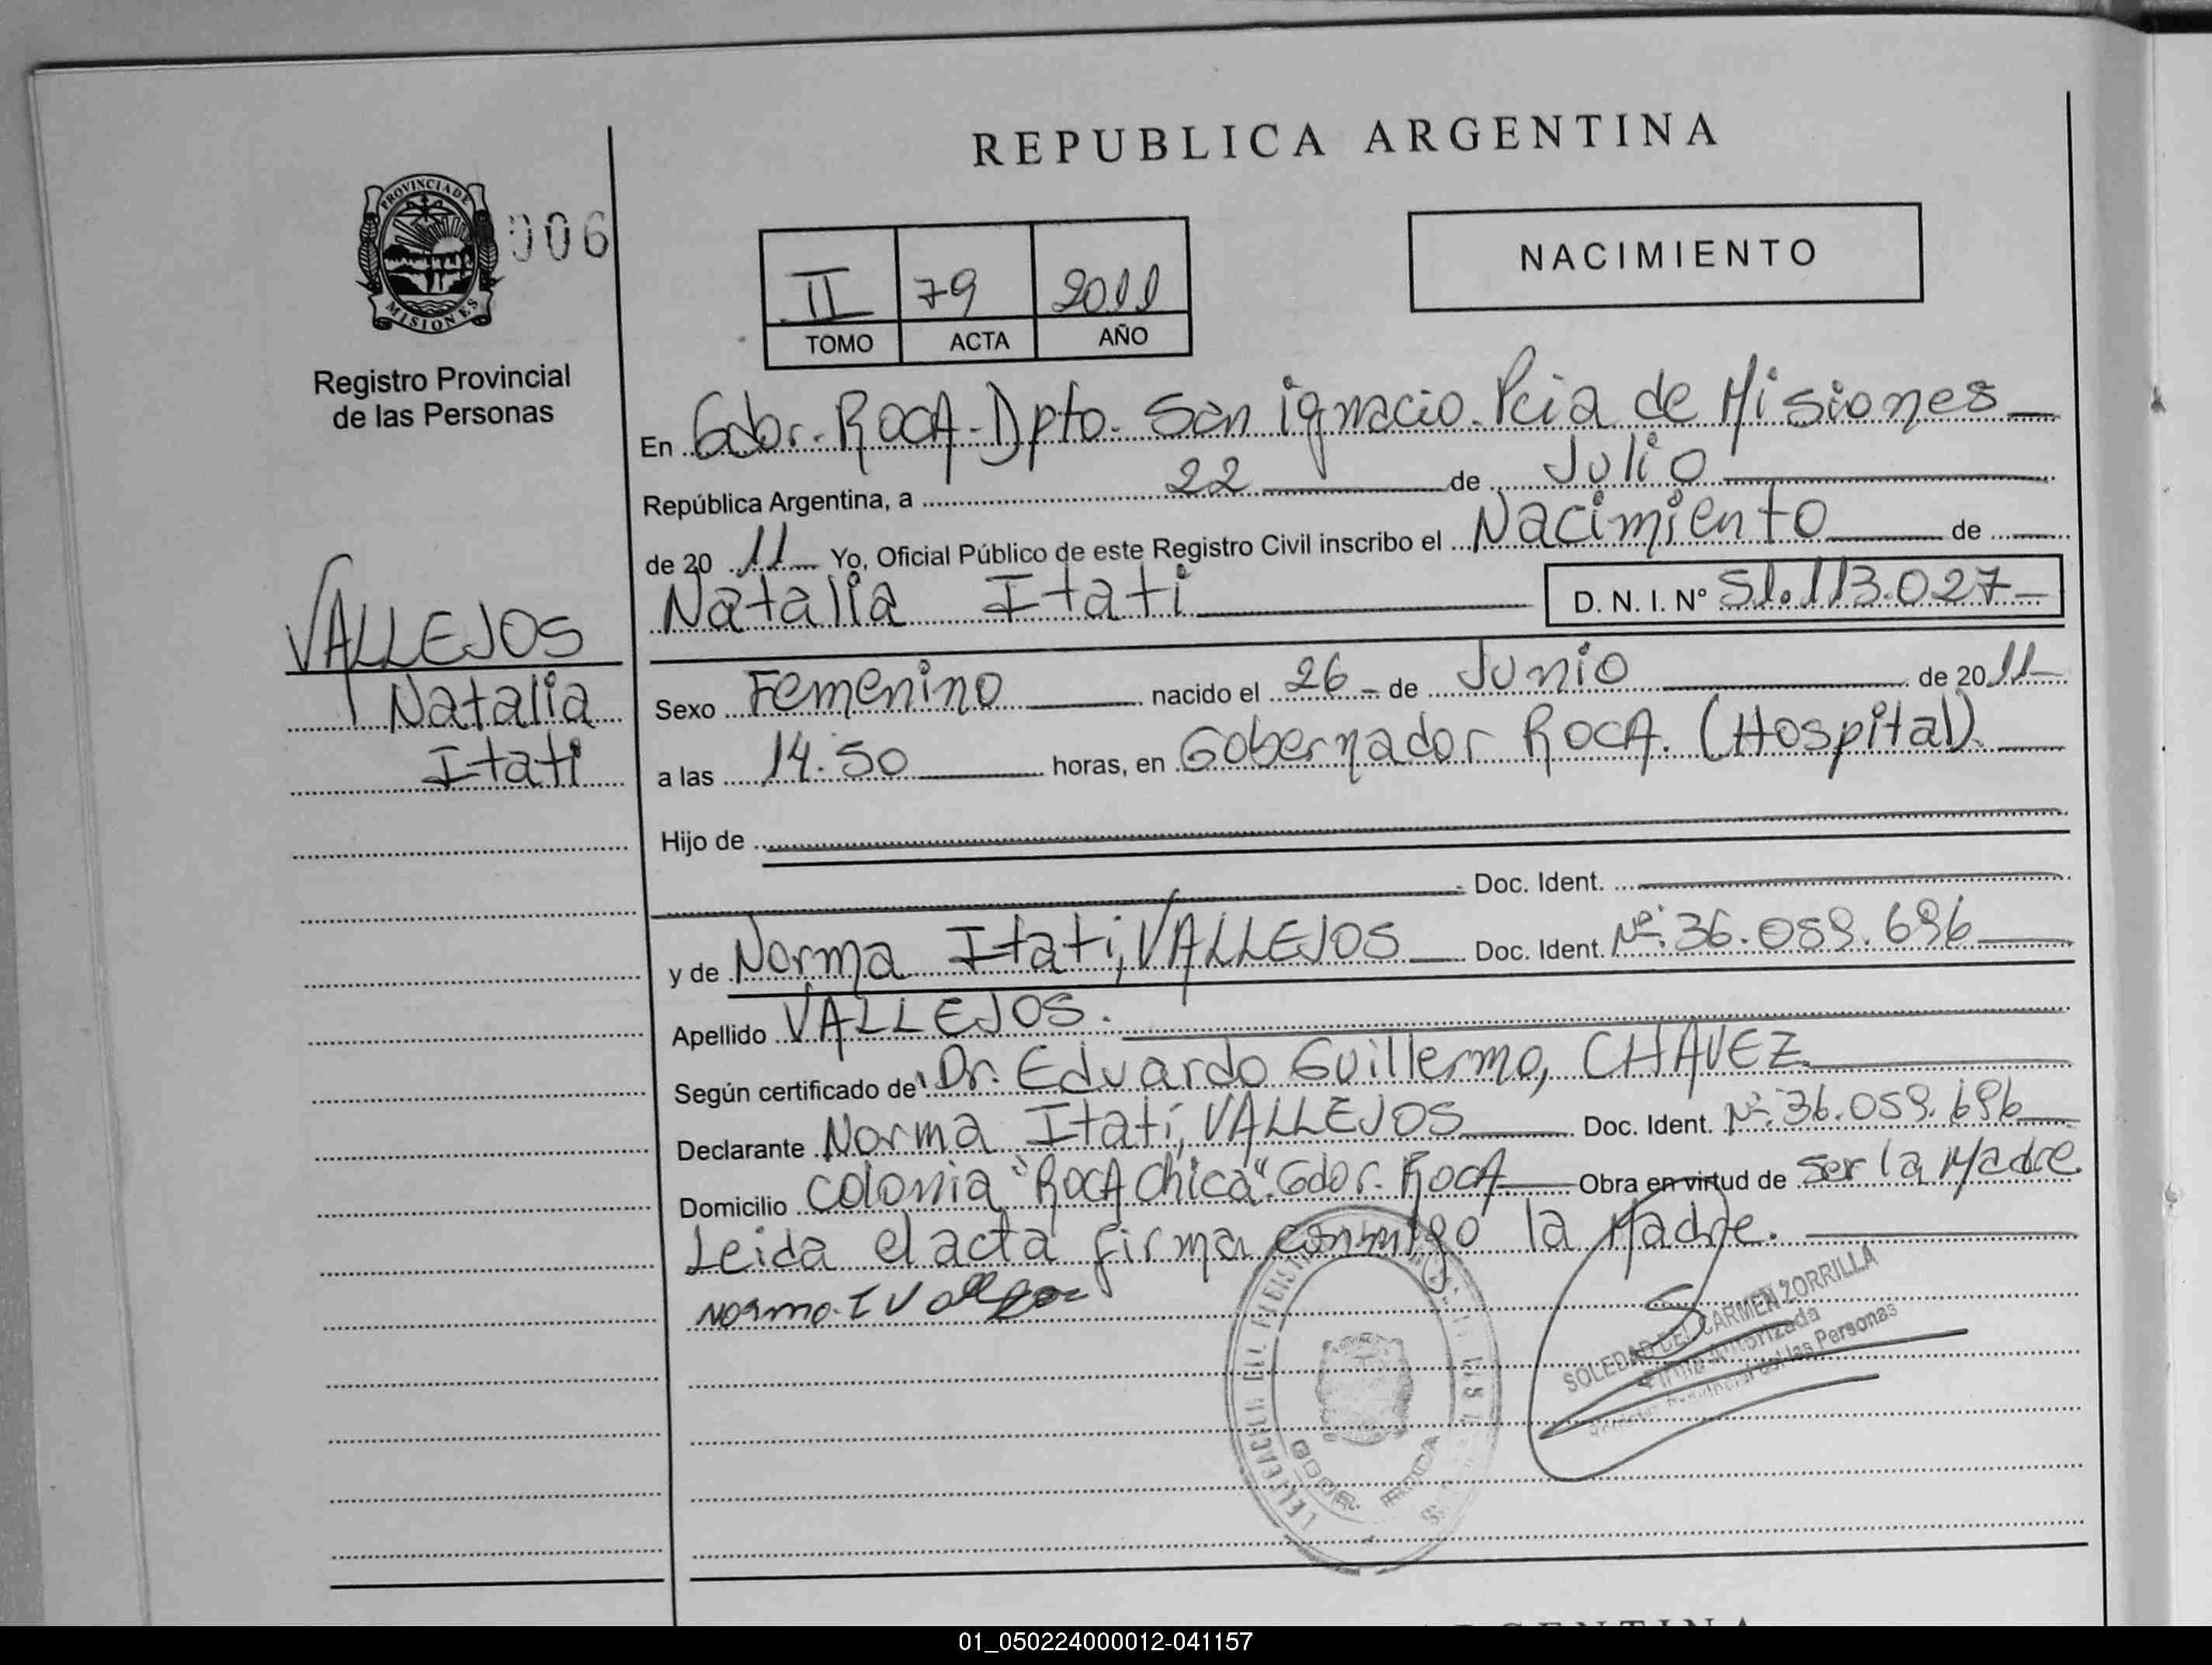 REPUBLICA ARGENTINA
PROVINCIA DE
MISIONES
006
Registro Provincial
de las Personas
II 79 2011
TOMO ACTA AÑO
NACIMIENTO
En Gdor. ROCA - Dpto. San ignacio. Pcia de Misiones
República Argentina, a 22 de Julio
de 20 11 Yo, Oficial Público de este Registro Civil inscribo el Nacimiento de
Natalia Itati D. N. I. Nº 51.113.027
VALLEJOS
Natalia
Itati
Sexo Femenino nacido el 26 de Junio de 20 11
a las 14.50 horas, en Gobernador ROCA. (Hospital)
Hijo de
Doc. Ident.
y de Norma Itati, VALLEJOS Doc. Ident. Nº: 36.059.696
Apellido VALLEJOS.
Según certificado de Dr. Eduardo Guillermo, CHAVEZ
Declarante Norma Itati, VALLEJOS Doc. Ident. Nº: 36.059.696
Domicilio Colonia "ROCA Chica". Gdor. ROCA Obra en virtud de Ser la Madre
Leida el acta firma conmigo la Madre.
Norma I Vallejos
SOLEDAD DEL CARMEN ZORRILLA
Firma Autorizada
de las Personas
GDOR. ROCA
01_050224000012-041157